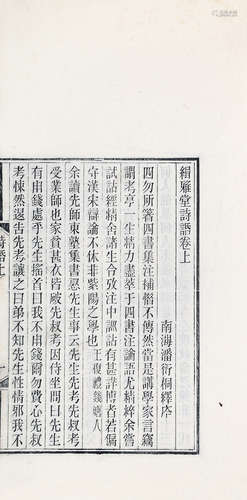 緝雅堂詩話卷上
南海潘衍桐繹序
四勿所箸四書集注補惜不傳然當是講學家言竊
謂考亭一生精力盡萃于四書注論語尤精粹余嘗
試詁經精舍諸生合攷注中訓詁有甚詳博者若偏
守漢宋辯論不休非紫陽之學也
王復禮錢塘人
余讀先師東塾集書
先生事云先生先考
受業師也家貧甚衣皆破先叔考因侍坐問曰先生
有用錢處乎先生搖首曰我不用錢爾勿費心先叔
考悚然退告先考讓之曰弟不知先生性情邪我不
詩話上